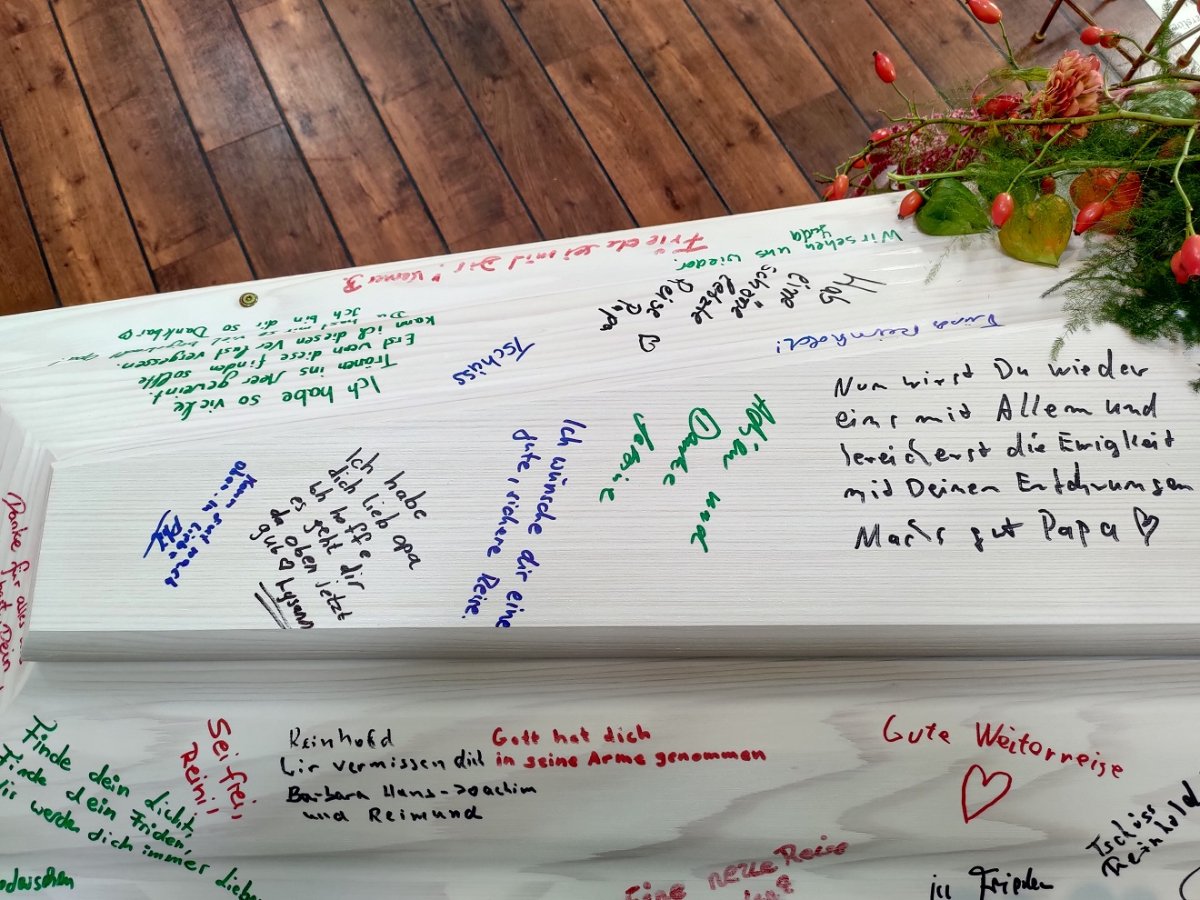 Friede sei mit Dir!
Wir sehen uns wieder.
Hab
eine
schöne
letzte
Reise
Papa ♡
Ich habe so viele
Tränen ins Meer geweint.
Erst wenn diese finden sollte
kann ich diesen Verlust vergessen.
Ich bin dir so Dankbar
Tschüss
Reinhold!
Nun wirst Du wieder
eins mit Allem und
bereicherst die Ewigkeit
mit Deinen Erfahrungen
Mach's gut Papa ♡
Adieu und
Danke
Ich wünsche dir eine
gute, sichere Reise.
Ich habe
dich lieb Opa
Ich hoffe
es geht dir
da oben jetzt
gut ♡
Danke für alles
Dein
Finde dein Licht,
Finde dein Friden,
wir werden dich immer lieben
Sei frei,
Reini,
Reinhold
Wir vermissen dich
Barbara Hans-Joachim
und Reimund
Gott hat dich
in seine Arme genommen
Gute Weiterreise
♡
Tschüss
Reinhold
Eine neue Reise
in Frieden